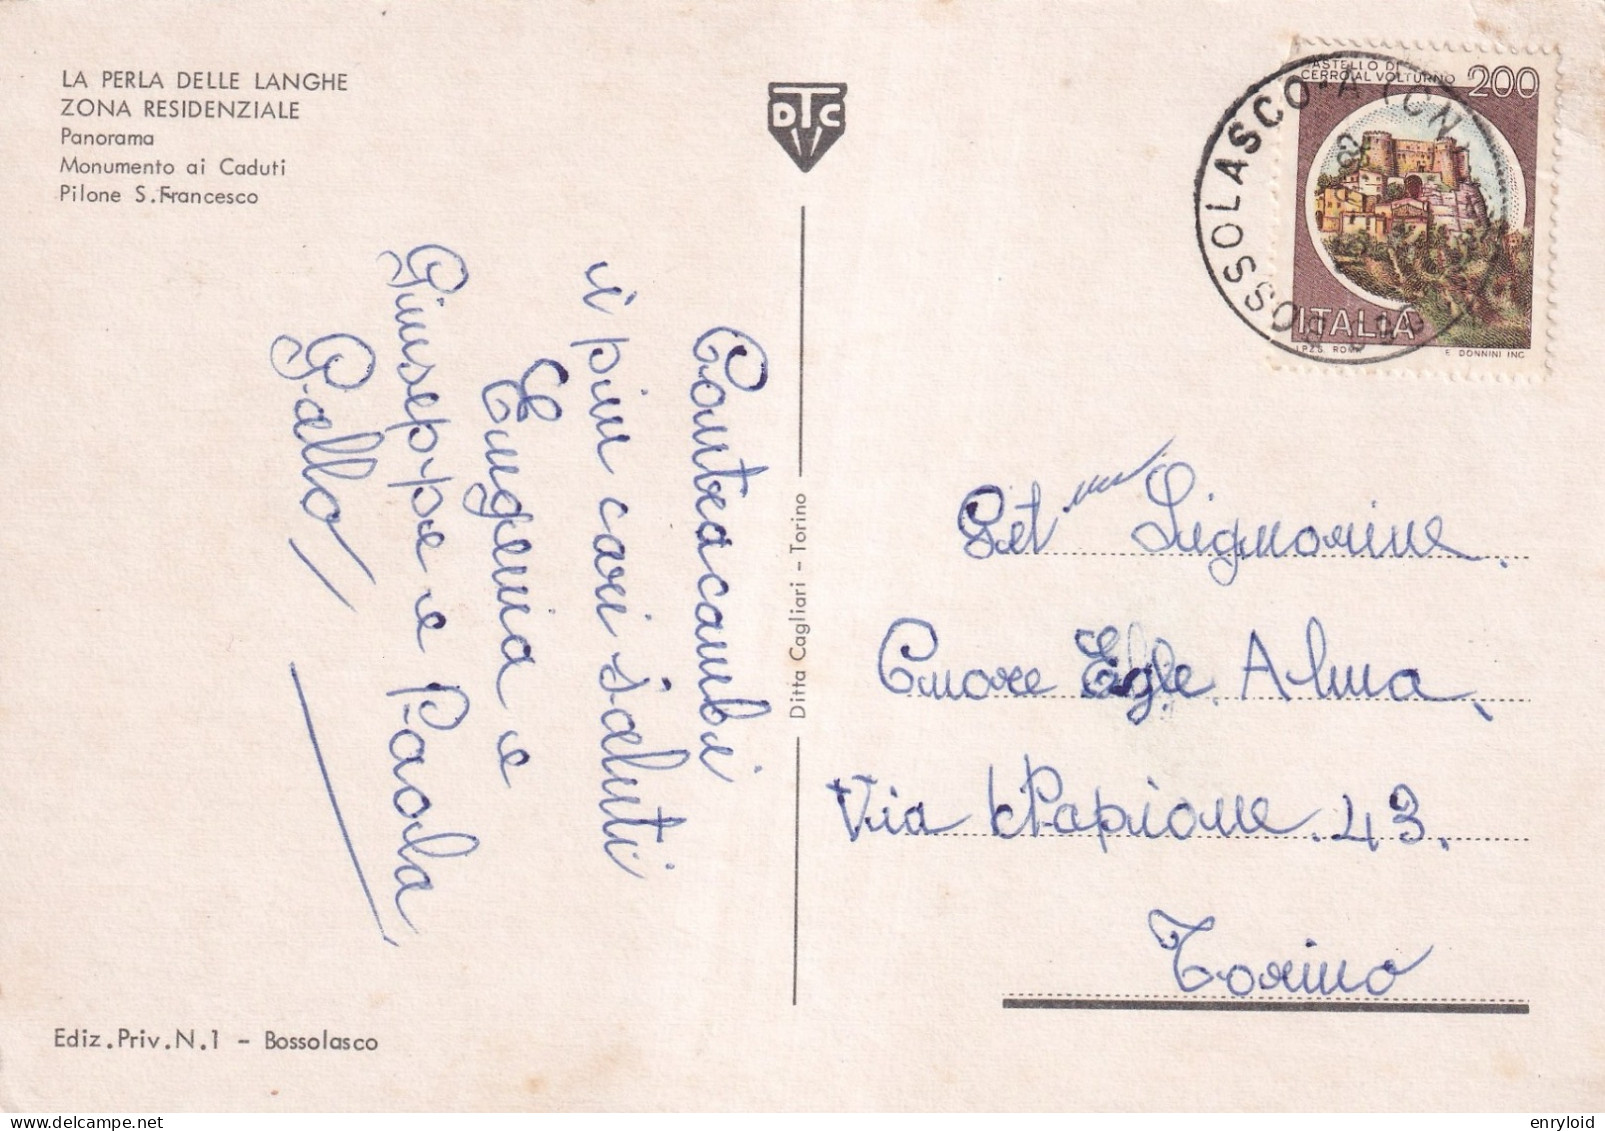 LA PERLA DELLE LANGHE
ZONA RESIDENZIALE
Panorama
Monumento ai Caduti
Pilone S.Francesco
DTC
ASTELLO DI
CERRO AL VOLTURNO 200
ITALIA
I.P.Z.S. ROMA E. DONNINI INC.
BOSSOLASCO-A (CN)
Contracambi
i più cari saluti
Eugenia e
Giuseppe e Paola
Gallo
Ditta Cagliari - Torino
Get me Signorine
Cuore Egle Alma
Via Papione. 43.
Torino
Ediz.Priv.N.1 - Bossolasco
enryloid